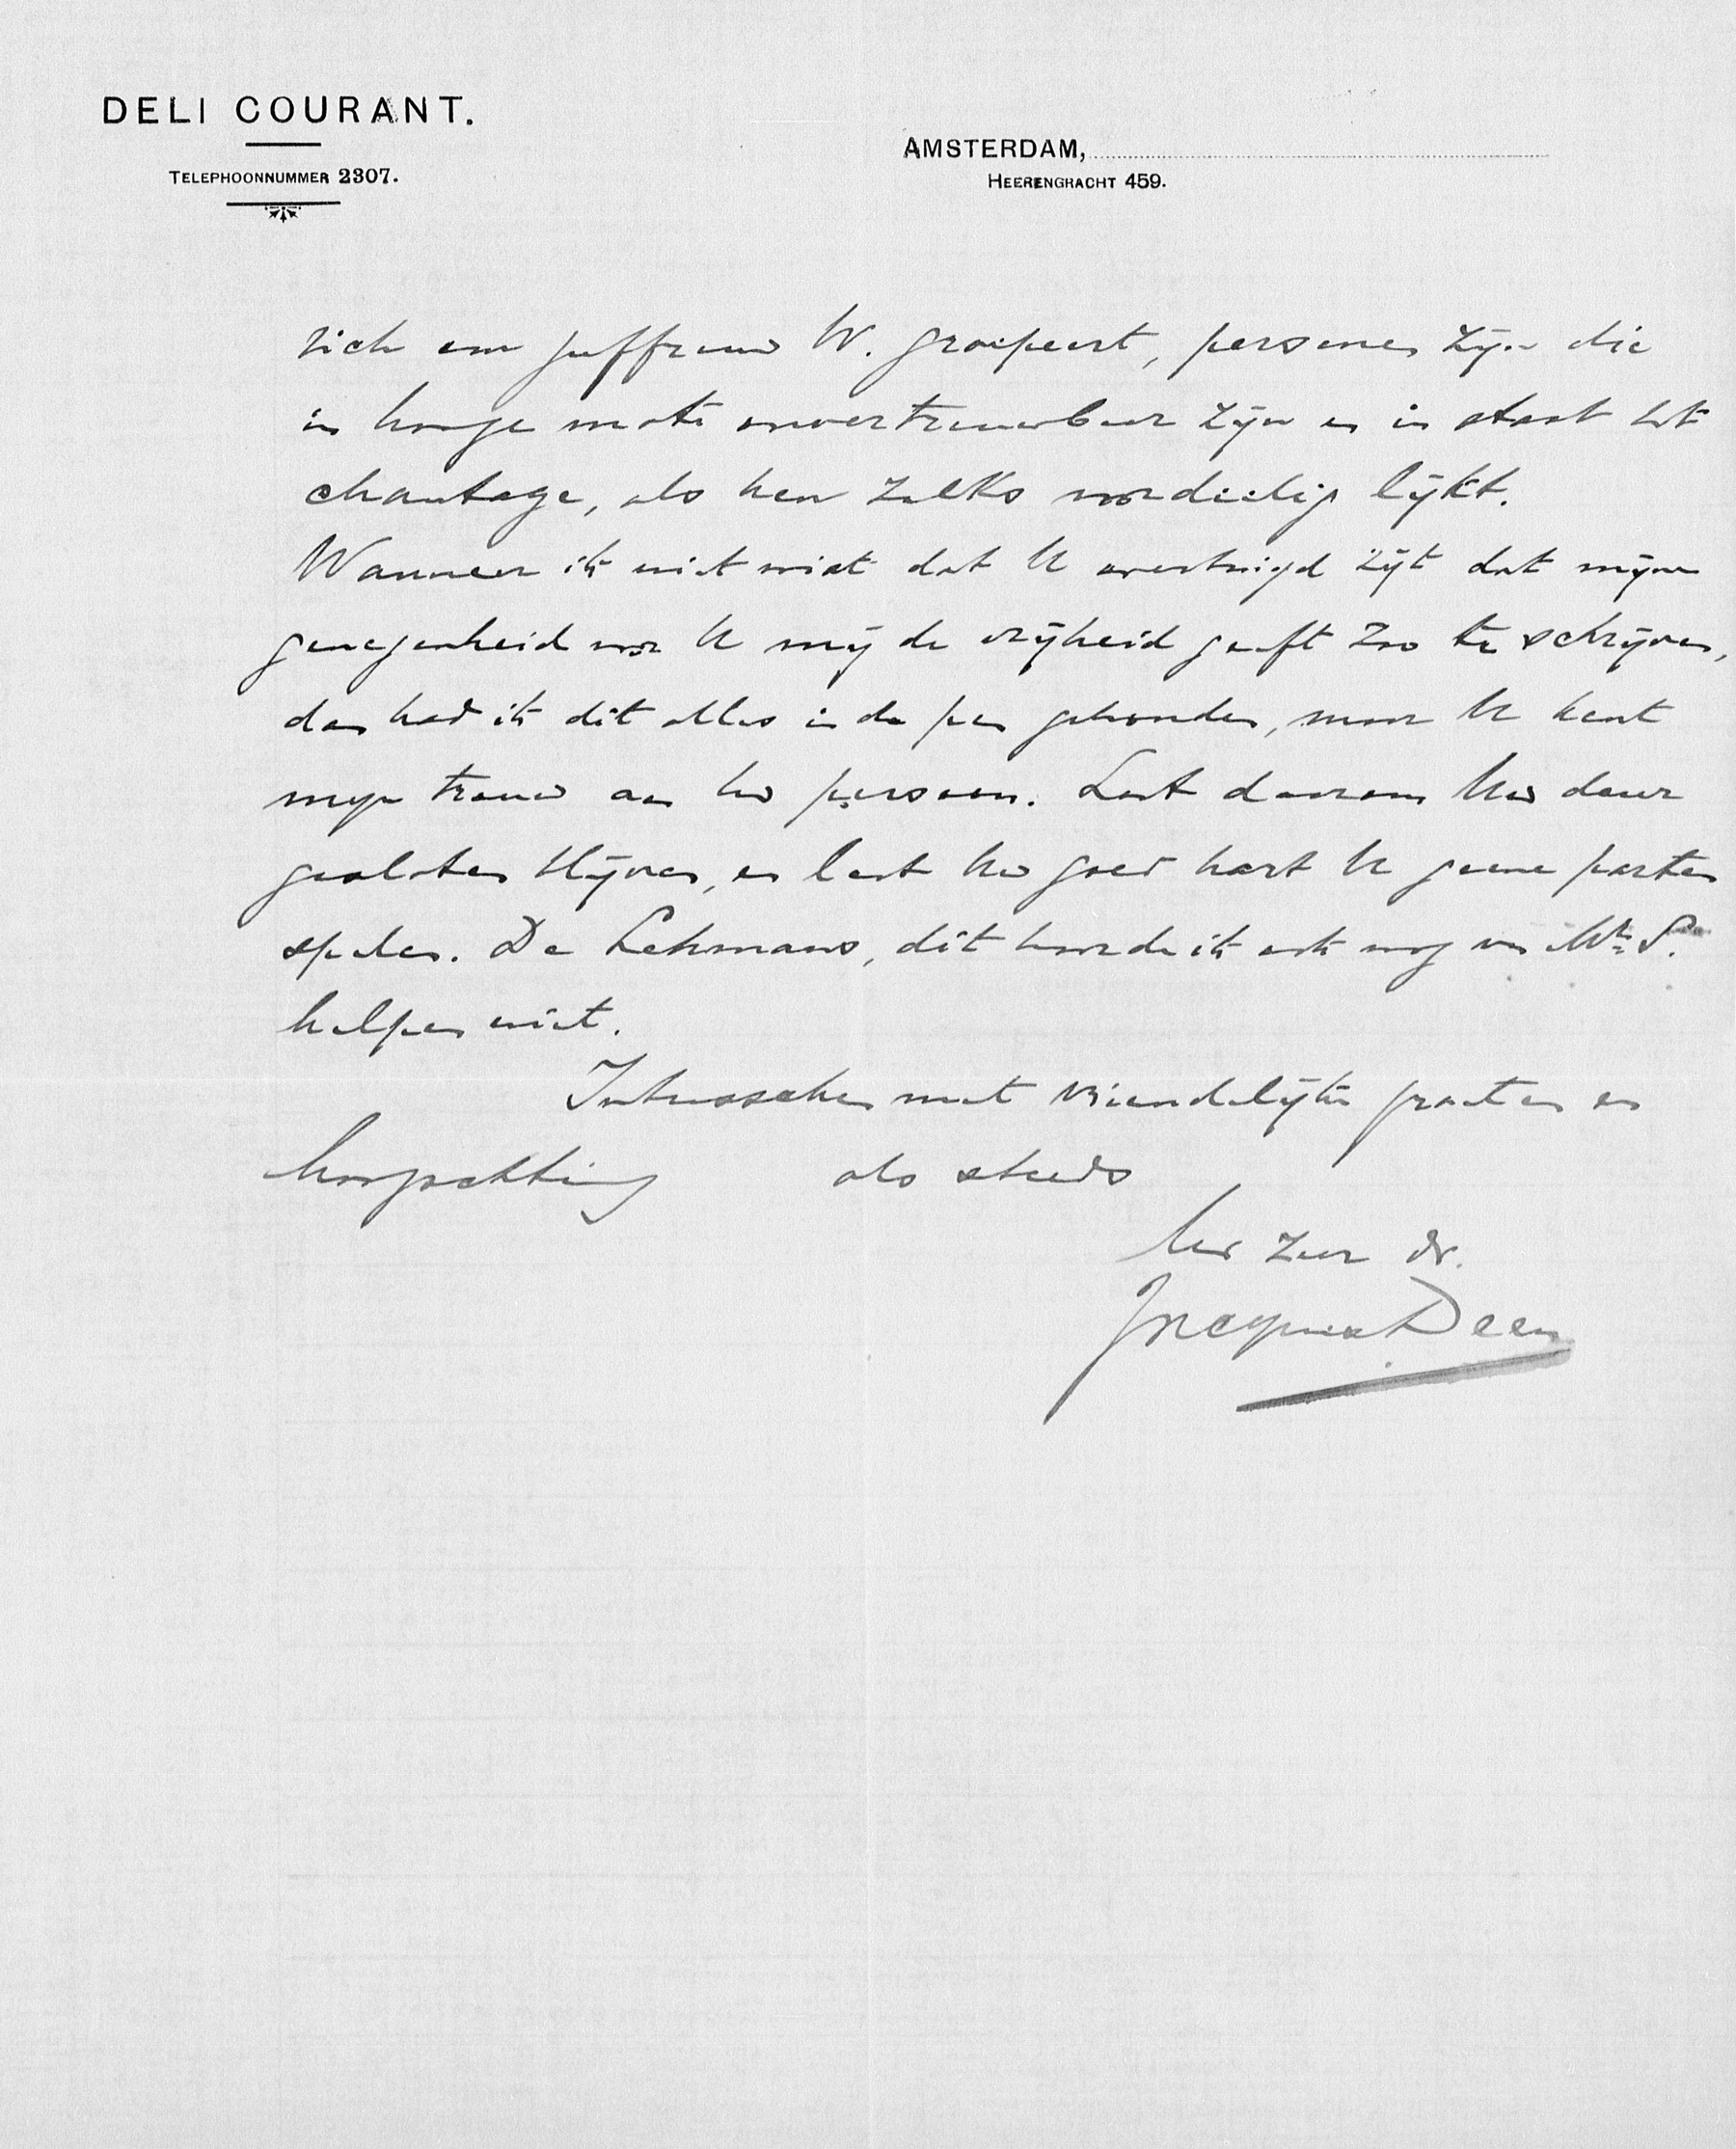 DELI COURANT.
TELEPHOONNUMMER 2307.
AMSTERDAM,
HEERENGRACHT 459.
zich om juffrouw W. groepeert, personen zijn die
in hooge mate onvertrouwbaar zijn en in staat tot
chantage, als hen zulks voordeelig lijkt.
Wanneer ik niet wist dat U overtuigd zijt dat mijne
genegenheid voor U mij de vrijheid geeft zoo te schrijven,
dan had ik dit alles in de pen gehouden, maar U kent
mijn trouw aan Uw persoon. Laat daarom Uw deur
gesloten blijven, en laat Uw goed hart U geene parten
spelen. De Lehmans, dit hoorde ik ook nog van Mr. S.
helpen niet.
Intusschen met vriendelijke groeten en
hoogachting als steeds
Uw zeer dv.
Jacques Deen